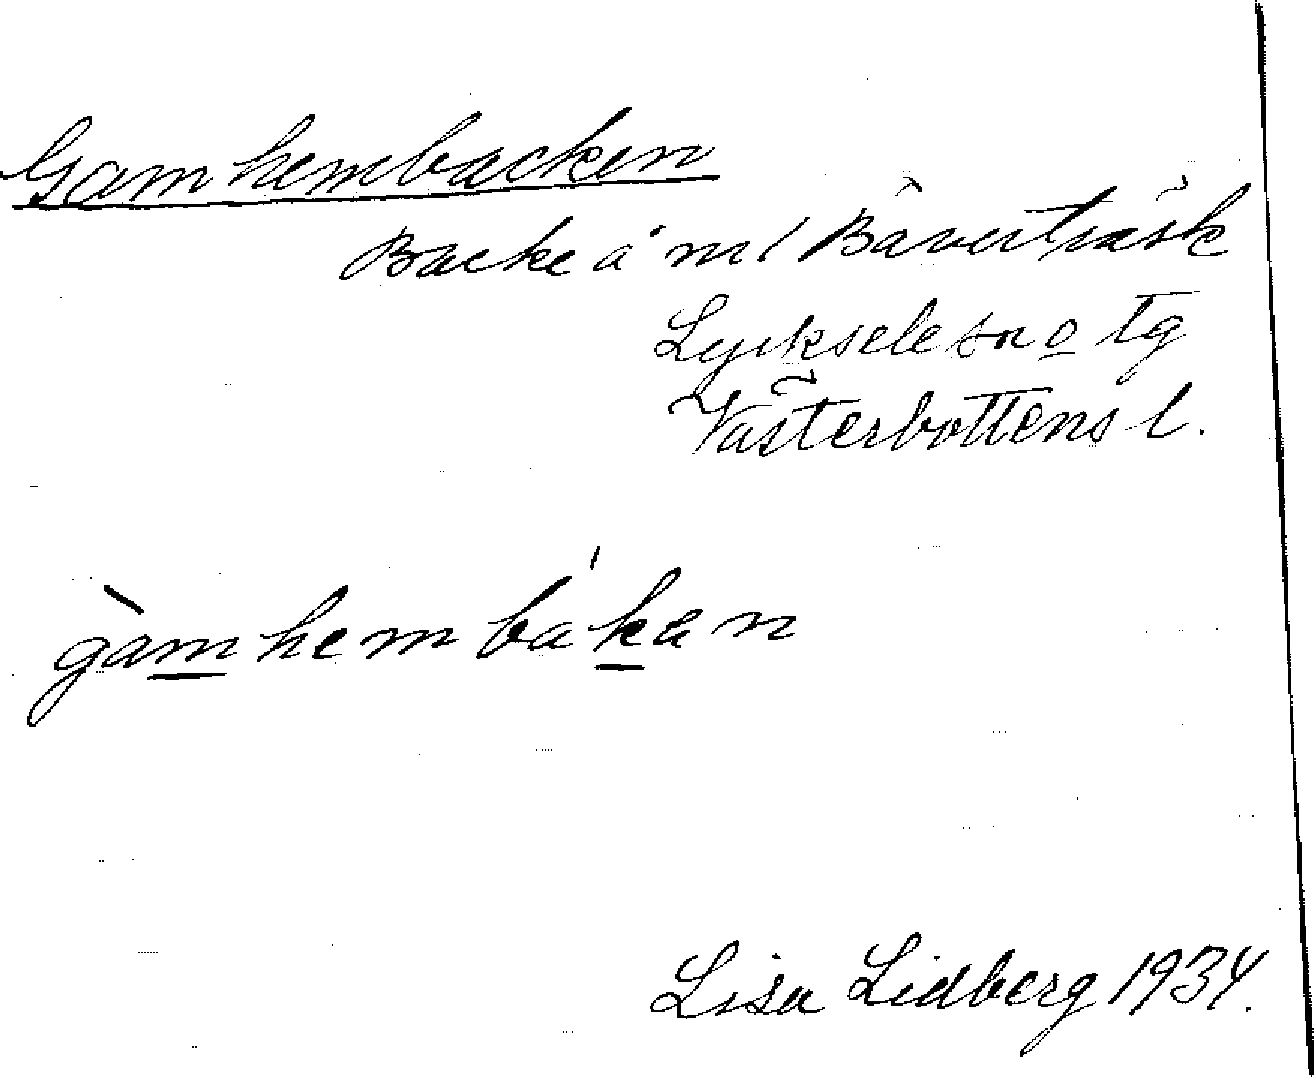 Gamhembacken
Backe å m/ Bäverträsk
Lycksele sn o tg
Västerbottens l.
gàmhembákan
Lisa Lidberg 1934.